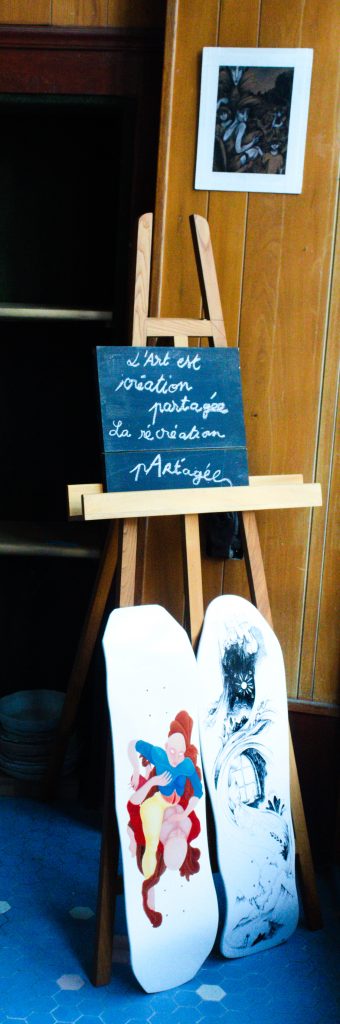 L'Art est
création
partagée
La récréation
pARTagée